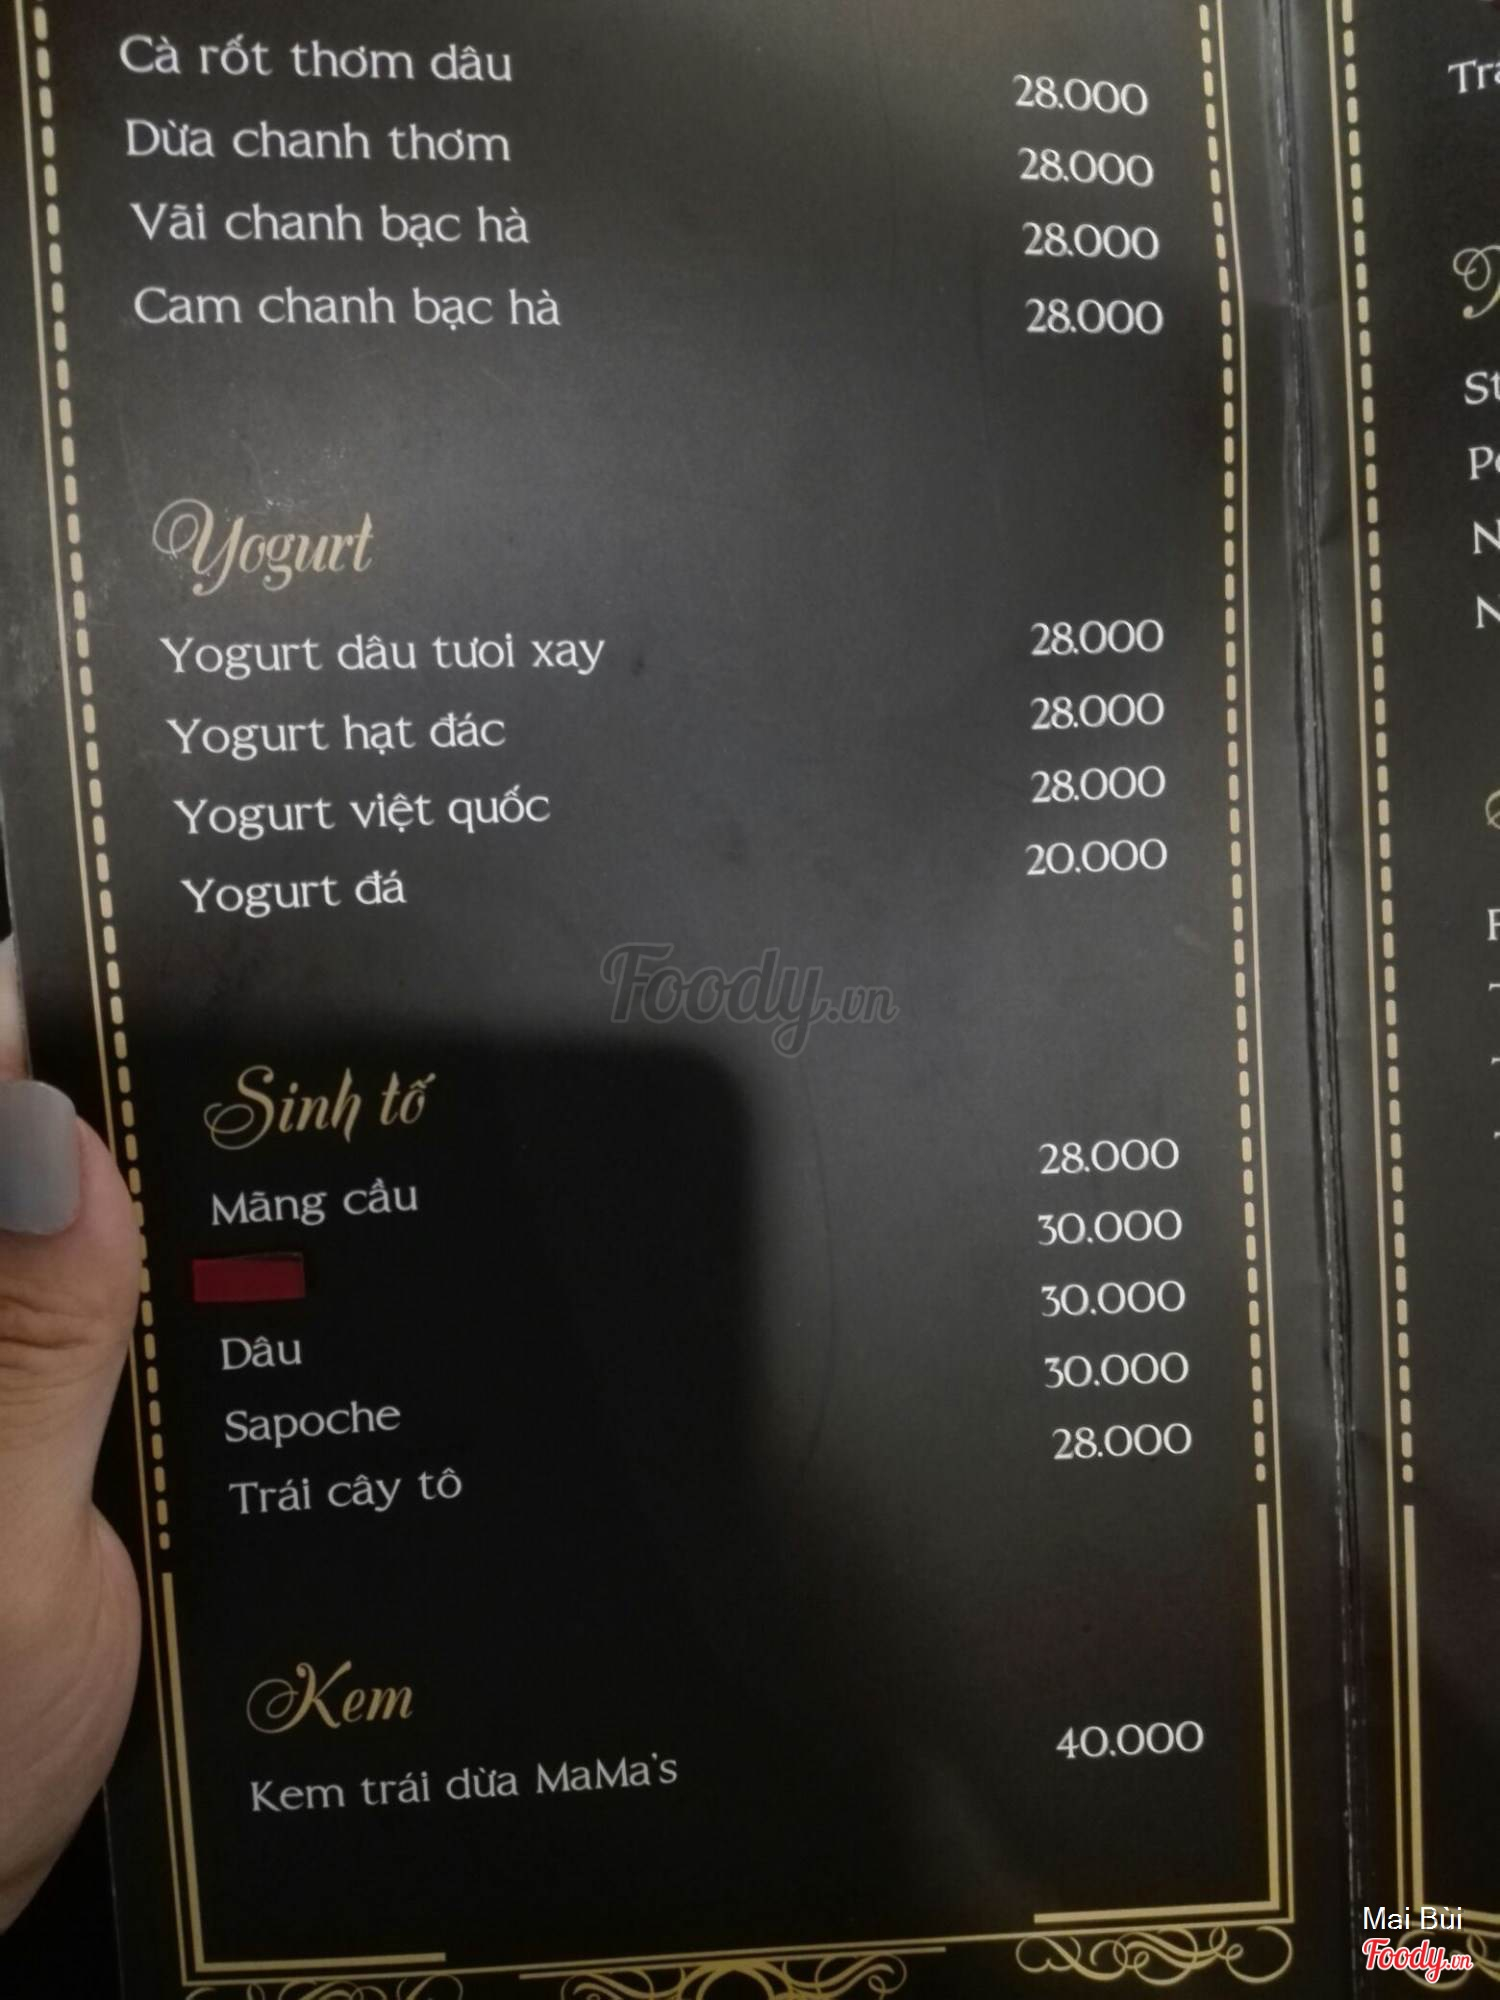 Cà rốt thơm dâu 28.000
Dừa chanh thơm 28.000
Vãi chanh bạc hà 28.000
Cam chanh bạc hà 28.000
Yogurt
Yogurt dâu tươi xay 28.000
Yogurt hạt đác 28.000
Yogurt việt quốc 28.000
Yogurt đá 20.000
Foody.vn
Sinh tố
Mãng cầu 28.000
30.000
Dâu 30.000
Sapoche 30.000
Trái cây tô 28.000
Kem
Kem trái dừa MaMa's 40.000
Mai Bùi
Foody.vn